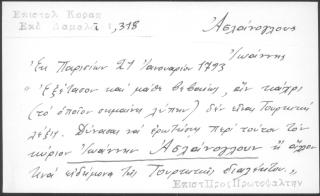 Επιστολ Κοραη
Εκδ Δαμαλᾶ 1,318
Ἀσλάνογλους
Ἰωάννης
Ἐκ Παρισίων 21 Ἰανουαρίου 1793
" Ἐξέτασον καὶ μάθε βεβαίως, ἂν
(τὸ ὁποῖον σημαίνει λύπην) δὲν εἶναι Τουρκικὴ
λέξις. Δύνασαι νὰ ἐρωτήσῃς περὶ τούτου τὸν
κύριον Ἰωάννην Ἀσλάνογλουν ἢ ἄλλον
τινὰ εἰδήμονα τῆς Τουρκικῆς διαλέκτου "
Επιστ Προς Πρωτοψαλτην